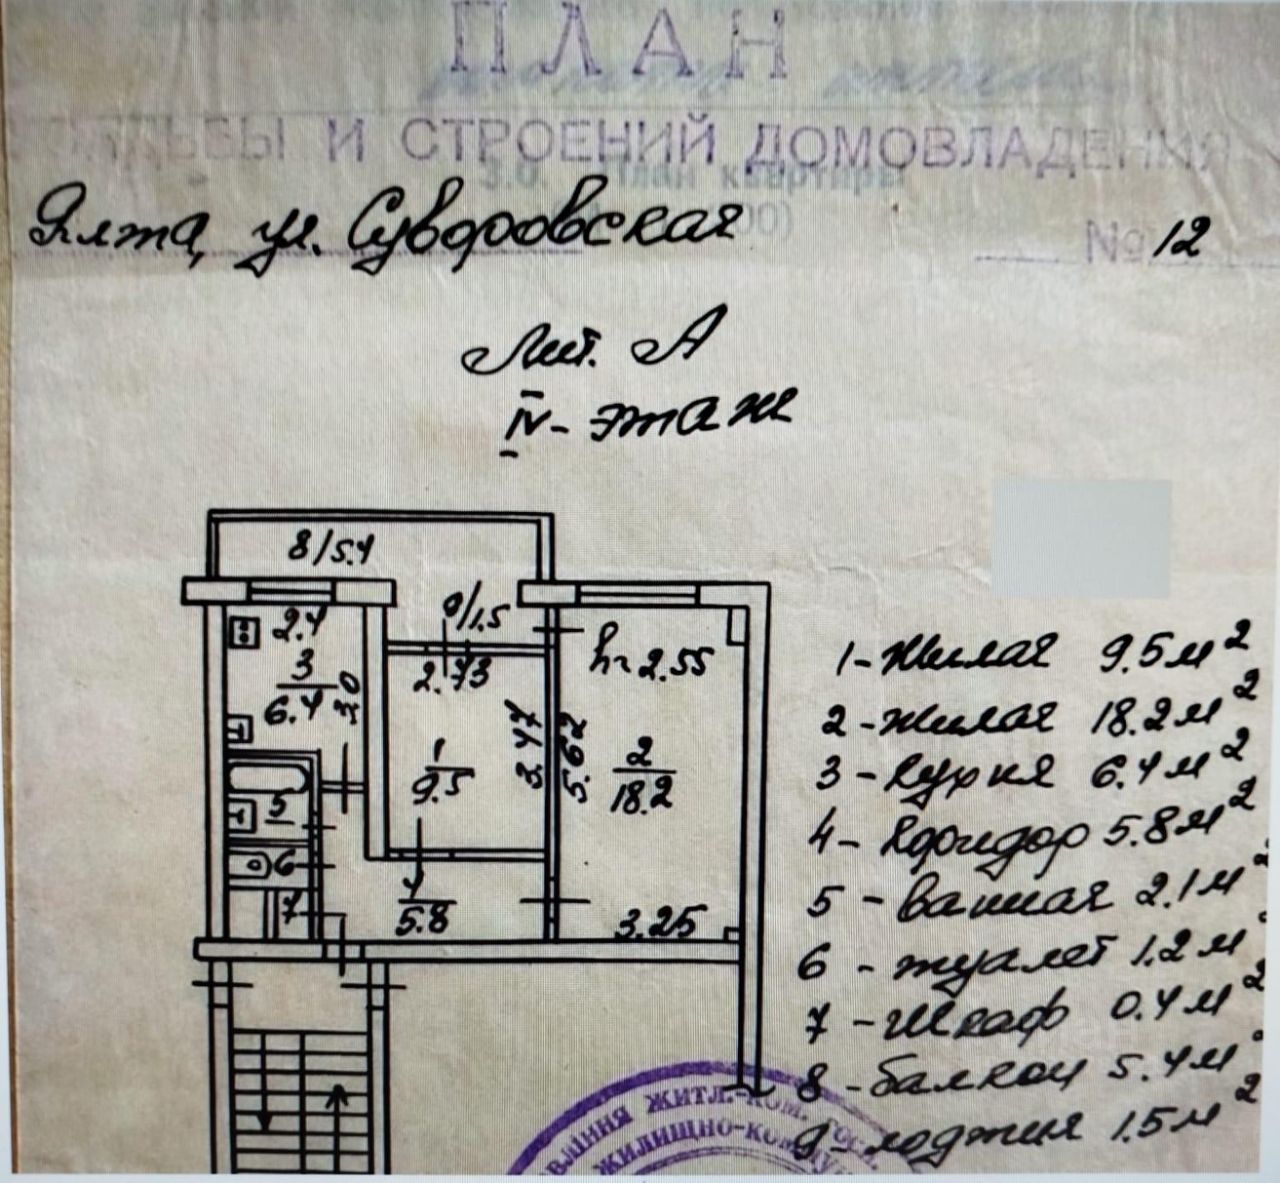 ПЛАН
И СТРОЕНИЙ ДОМОВЛАДЕНИЯ
3.0. План квартиры
Ялта, ул. Суворовская № 12
Лит. А
IV - этаж
8/5.4
9/1.5
2.4
h=2.55
3
6.4
2.73
3.47
5.62
1
9.5
2
18.2
5
6
7
4
5.8
3.25
1 - жилая 9.5 м²
2 - жилая 18.2 м²
3 - кухня 6.4 м²
4 - коридор 5.8 м²
5 - ванная 2.1 м²
6 - туалет 1.2 м²
7 - шкаф 0.4 м²
8 - балкон 5.4 м²
9 - лоджия 1.5 м²
ЖИТЛ.-КОМ. ГОСП.
ЖИЛИЩНО-КОММУН